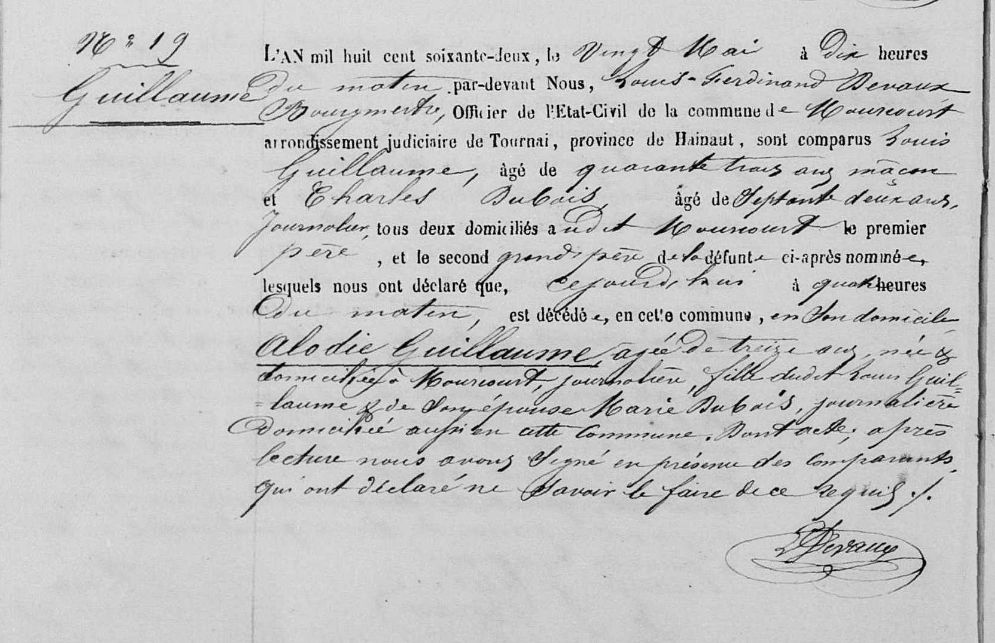 N° 19
Guillaume
L'AN mil huit cent soixante-deux, le Vingt Mai à Dix heures
du matin, par-devant Nous, Louis-Ferdinand Devaux
Bourgmestre, Officier de l'Etat-Civil de la commune de Mourcourt
arrondissement judiciaire de Tournai, province de Hainaut, sont comparus Louis
Guillaume, âgé de quarante trois ans maçon
et Charles Dubois, âgé de Septante deux ans,
Journalier, tous deux domiciliés audit Mourcourt le premier
père, et le second grand père de la défunte ci-après nommée,
lesquels nous ont déclaré que, cejourd'hui à quatre heures
du matin, est décédée, en cette commune, en son domicile
Alodie Guillaume, agée de treize ans, née &
domiciliée à Mourcourt, journalière, fille dudit Louis Guil-
=laume & de Son épouse Marie Dubois, journalière
Domiciliée aussi en cette Commune. Dont acte, après
lecture nous avons Signé en présence des comparants,
qui ont déclaré ne Savoir le faire de ce requis ./.
LDevaux